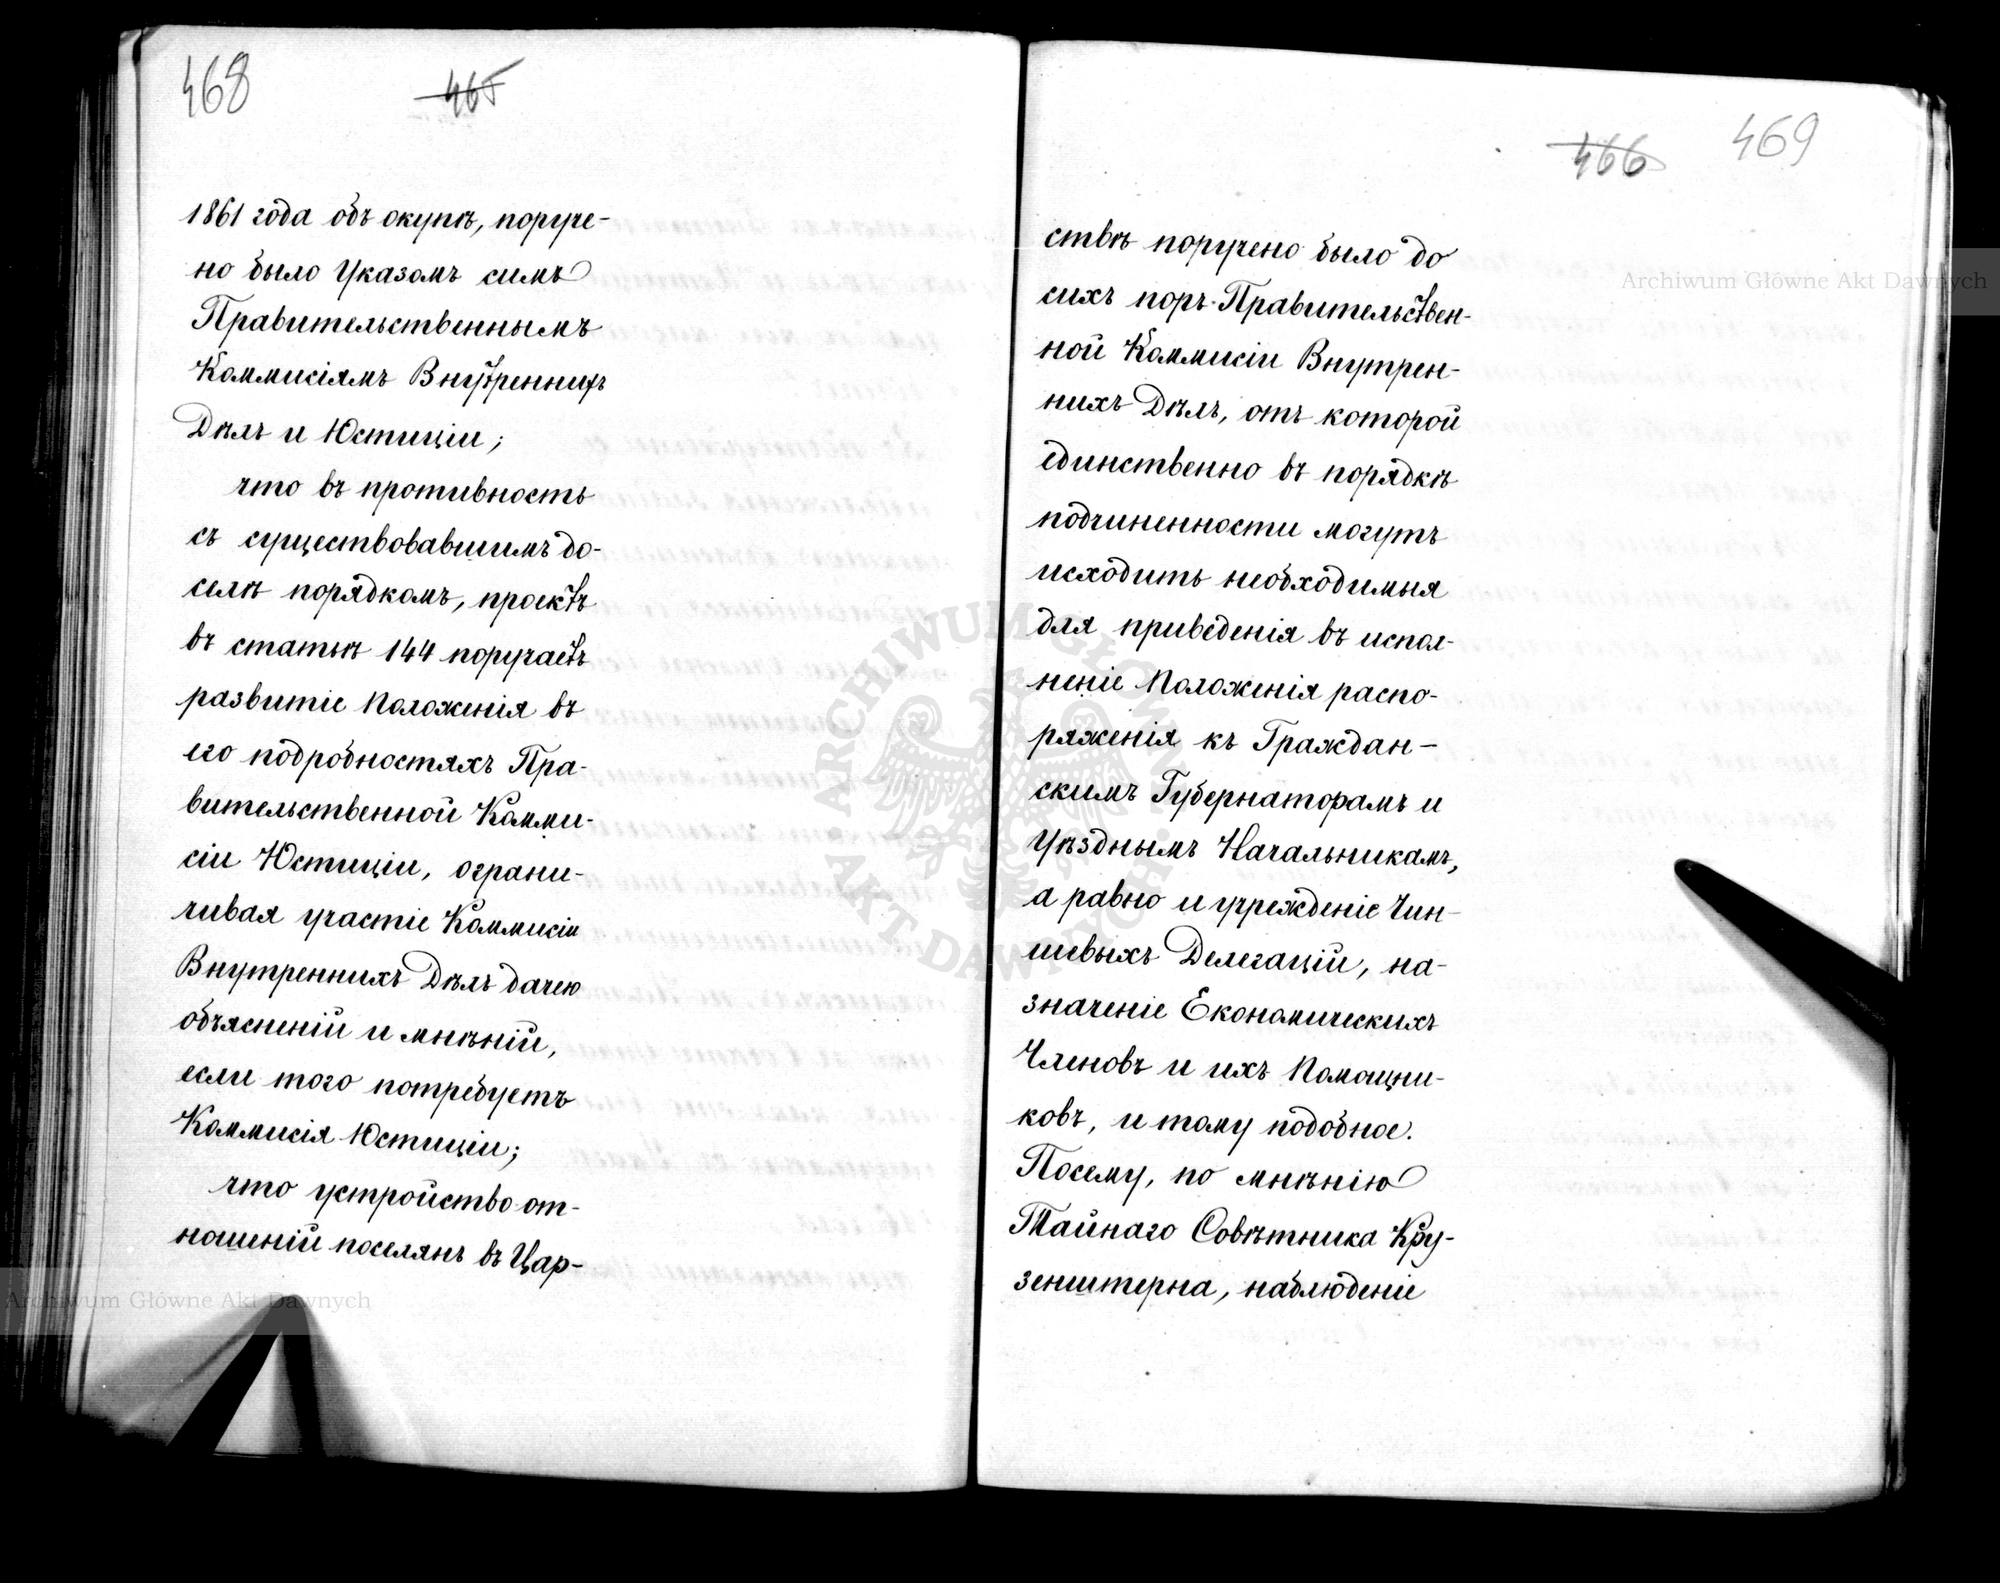 468
465
1861 года объ окупѣ, поруче-
но было Указомъ симъ
Правительственнымъ
Коммисіямъ Внутреннихъ
Дѣлъ и Юстиціи;
что въ противность
съ существовавшимъ до-
селѣ порядкомъ, проектъ
въ статьѣ 144 поручаетъ
развитіе Положенія въ
его подробностяхъ Пра-
вительственной Комми-
сіи Юстиціи, ограни-
чивая участіе Коммисіи
Внутреннихъ Дѣлъ дачею
объясненій и мнѣній,
если того потребуетъ
Коммисія Юстиціи;
что устройство от-
ношеній поселянъ въ Цар-
466
469
ствѣ поручено было до
сихъ поръ Правительствен-
ной Коммисіи Внутрен-
нихъ Дѣлъ, отъ которой
единственно въ порядкѣ
подчиненности могутъ
исходить необходимыя
для приведенія въ испол-
неніе Положенія распо-
ряженія къ Граждан-
скимъ Губернаторамъ и
Уѣзднымъ Начальникамъ,
а равно и учрежденіе Чин-
шевыхъ Делегацій, на-
значеніе Економическихъ
Членовъ и ихъ Помощни-
ковъ, и тому подобное.
Посему, по мнѣнію
Тайнаго Совѣтника Кру-
зенштерна, наблюденіе
Archiwum Główne Akt Dawnych
Archiwum Główne Akt Dawnych
ARCHIWUM GŁÓWNE
AKT DAWNYCH